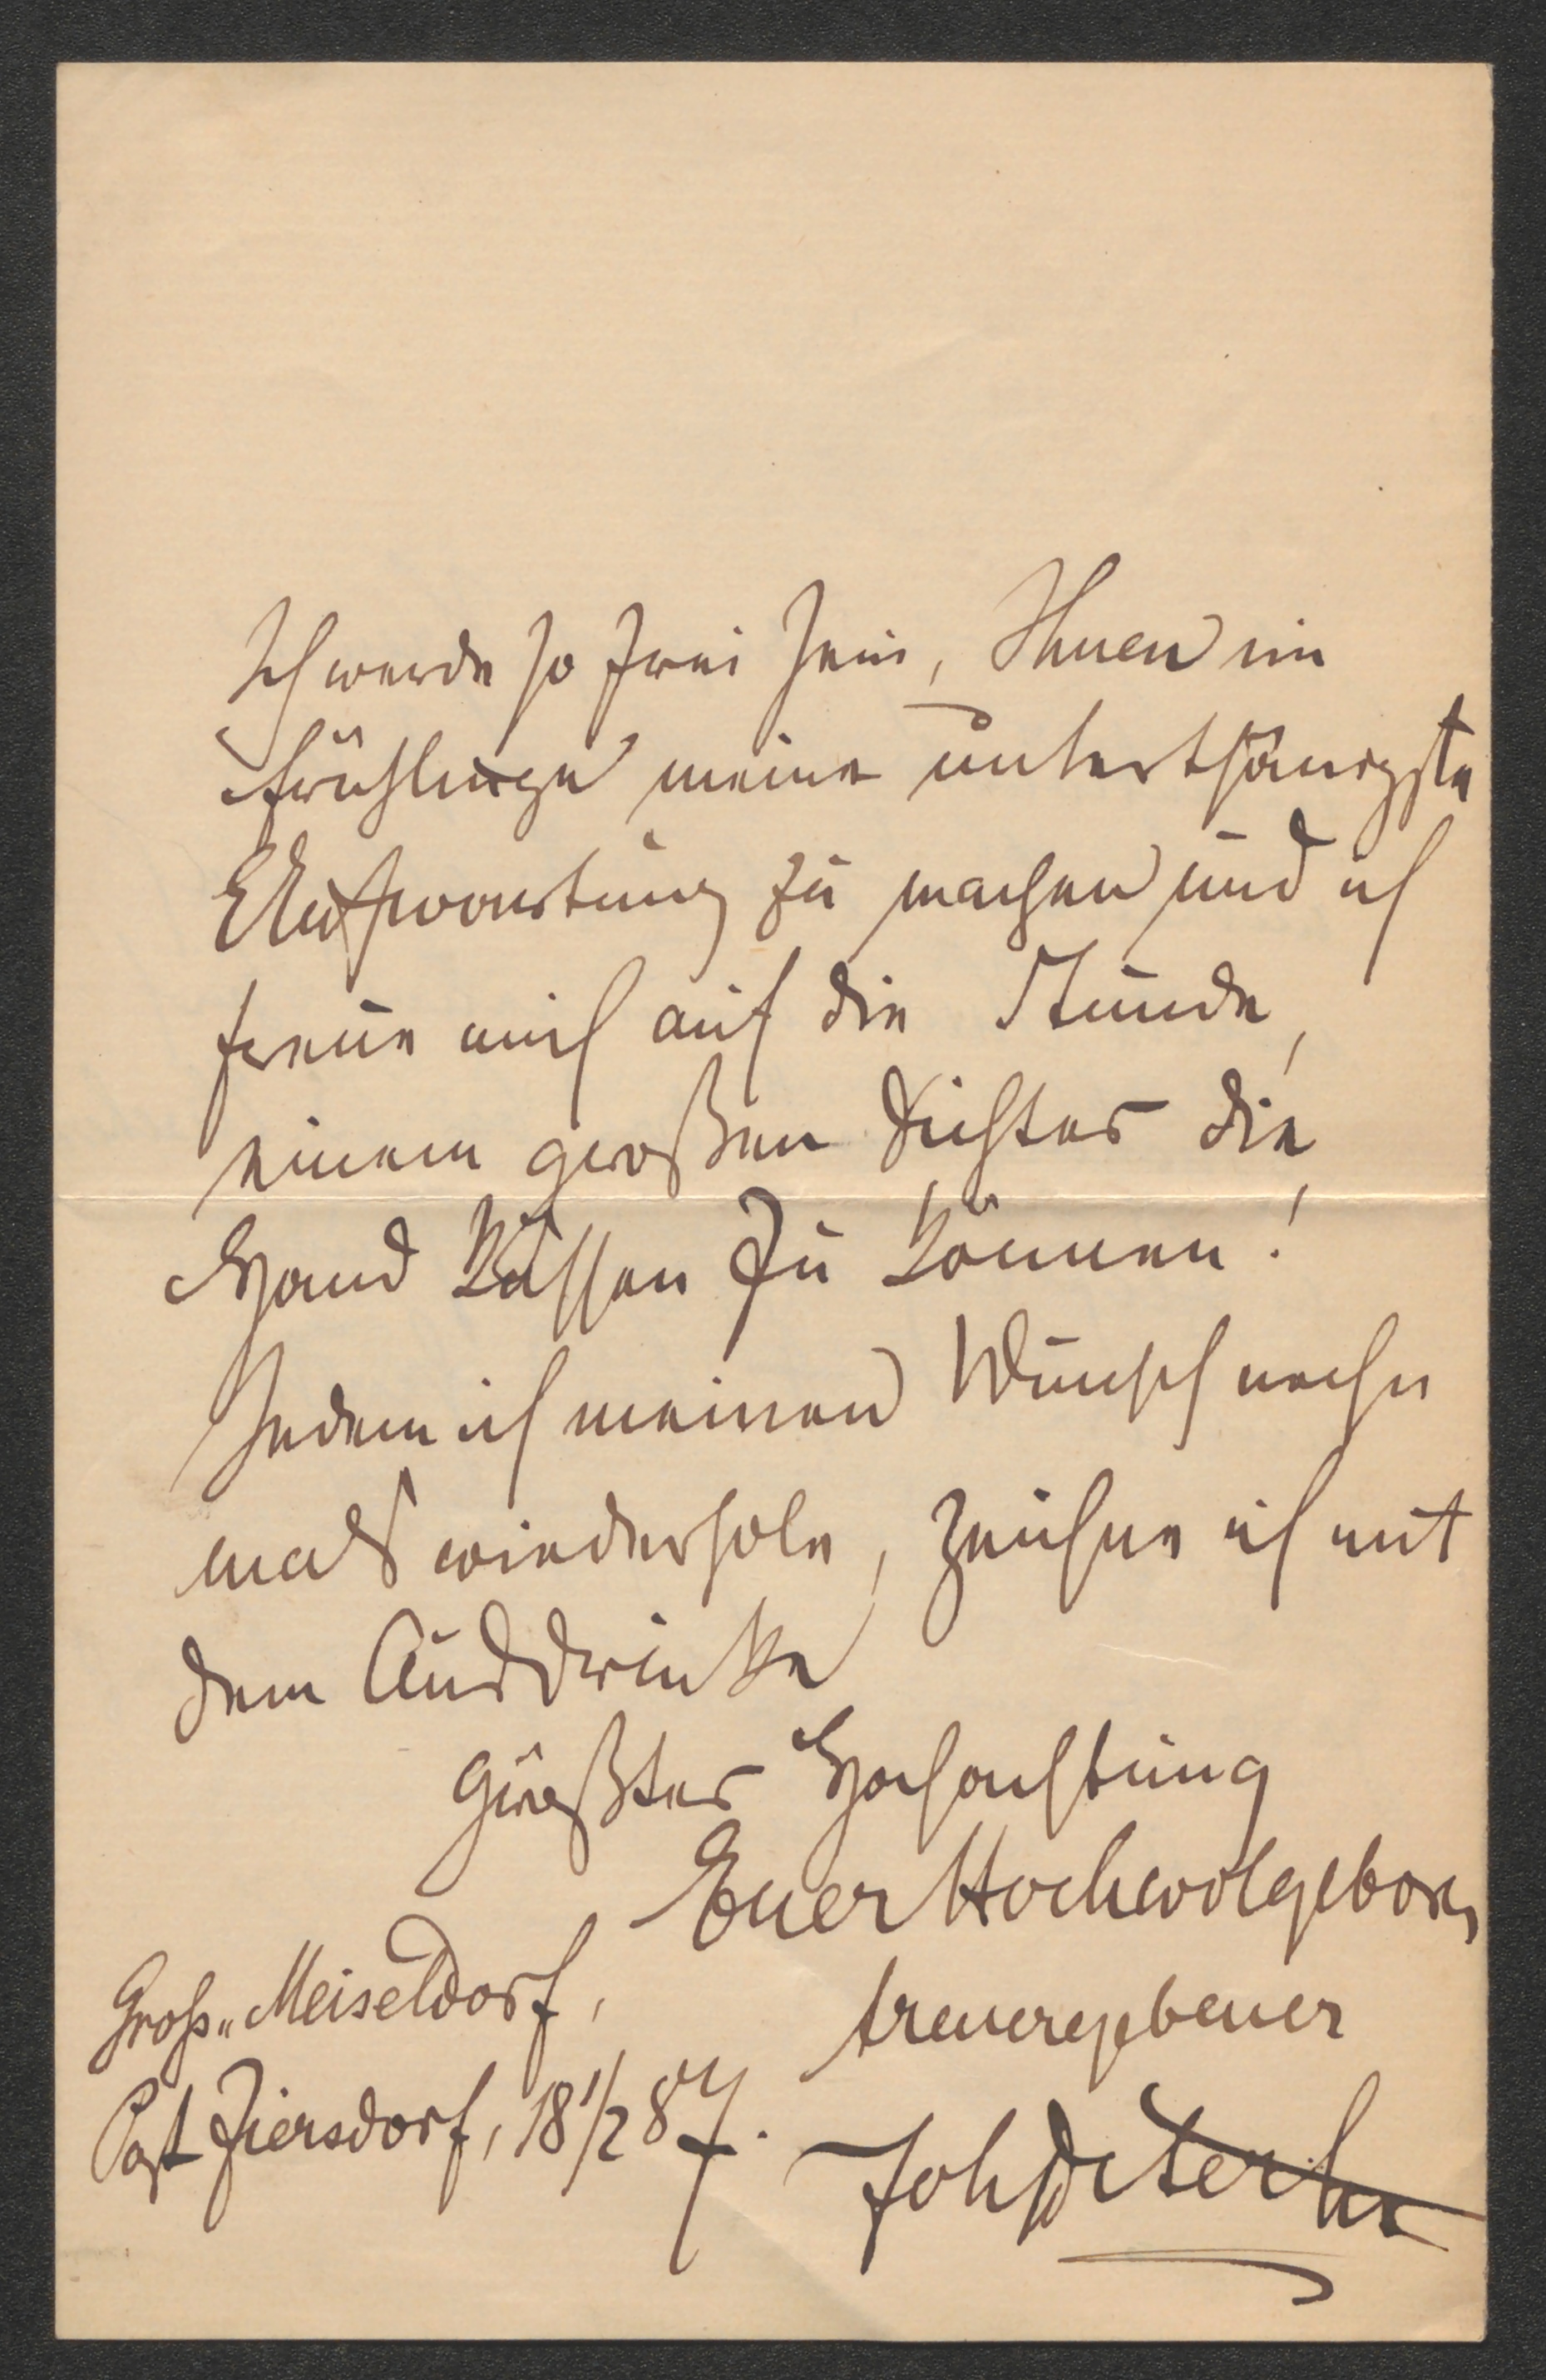 Ich werde so frei sein, Ihnen im
Frühlinge meine unterthänigste
Aufwartung zu machen und ich
freue mich auf die Stunde,
einem großen Dichter die
Hand küssen zu können!
Indem ich meinen Wunsch noch
mals wiederhole, zeichne ich mit
dem Ausdrucke
größter Hochachtung
Euer Hochwolgeboren
treuergebener
Groß-Meiseldorf,
Post Ziersdorf, 18 1/2 87.
Joh.